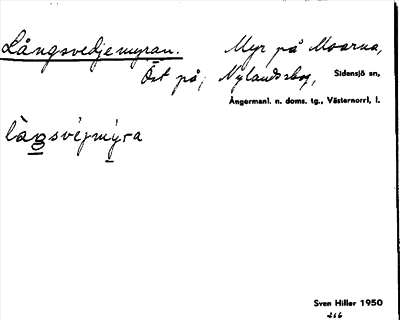 Långsvedjemyran. Myr på Moarna,
Öst på, Nylandsbog, Sidensjö sn,
Ångermanl. n. doms. tg., Västernorrl. l.
làŋsvèjmy̱ra
Sven Hiller 1950
216